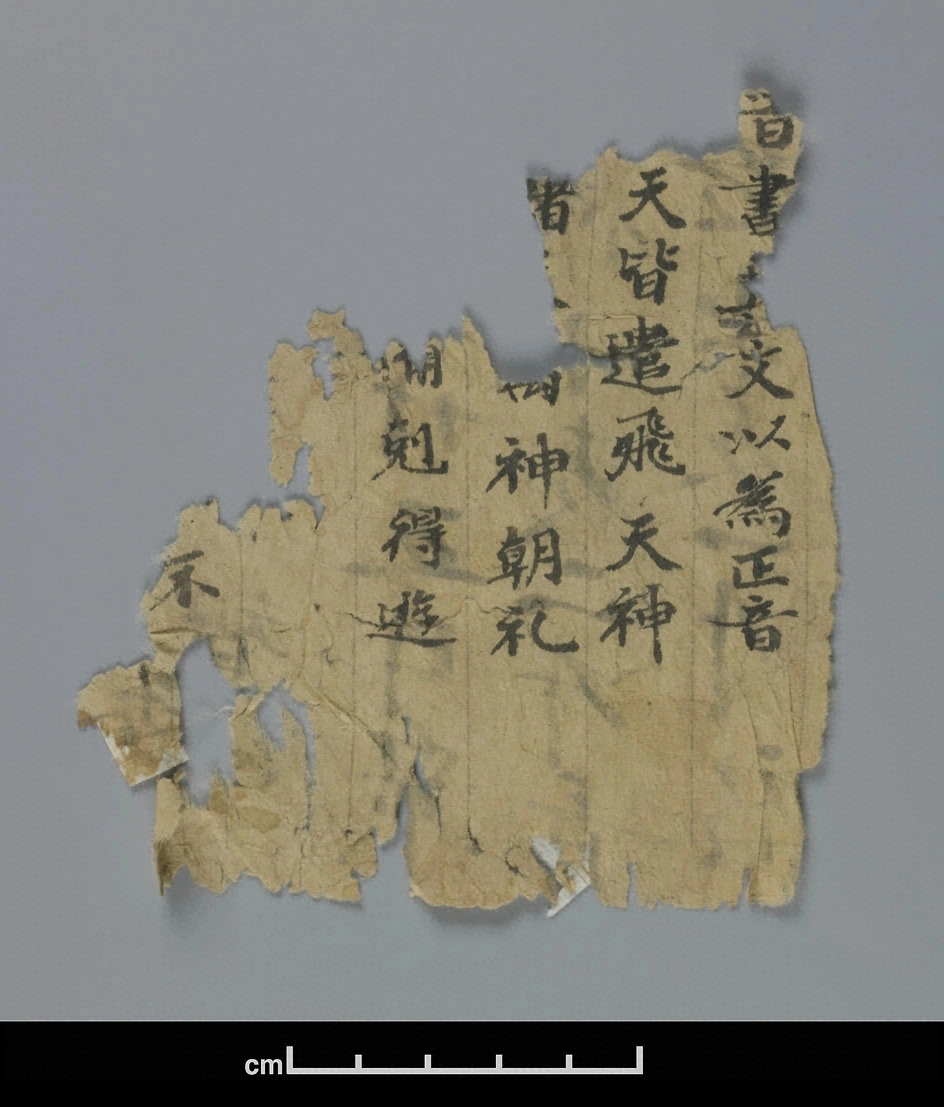 書文以為正音
天皆遣飛天神
神朝礼
剋得遊
不
cm